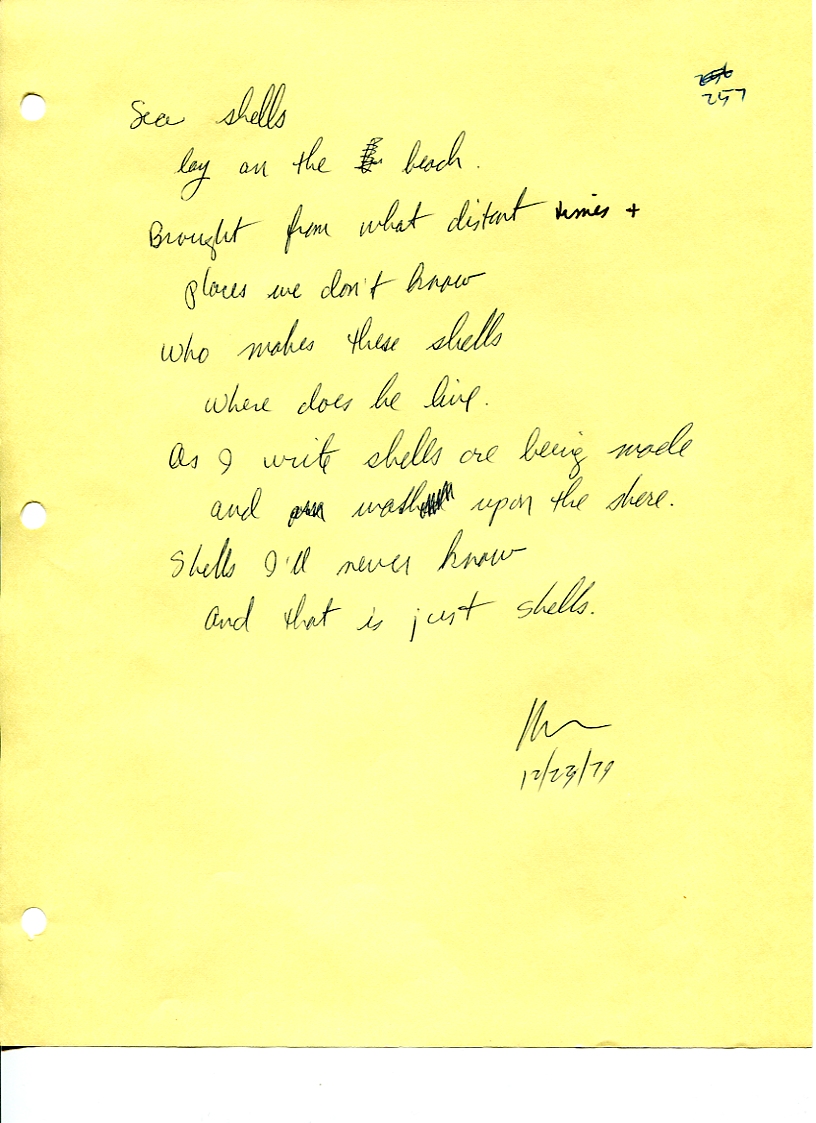 257
Sea shells
lay on the beach.
Brought from what distant times +
places we don't know
Who makes these shells
where does he live.
As I write shells are being made
and wash upon the shore.
Shells I'll never know
And that is just shells.
12/23/79